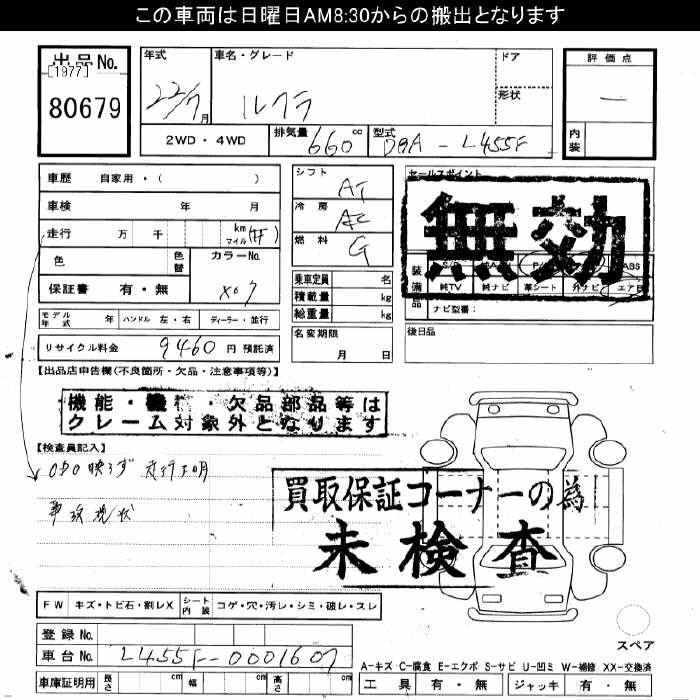 この車両は日曜日AM8:30からの搬出となります
出品No.
[1977]
80679
年式 車名・グレード ドア
22/7月 ルクラ 形状
2WD・4WD 排気量 660 cc 型式 DBA-L455F
評価点
―
内装
車歴 自家用・( )
車検 年 月
走行 万 千 km マイル (不)
色 色替 カラーNo.
X07
保証書 有・無
モデル年式 年 ハンドル 左・右 ディーラー・並行
リサイクル料金 9460 円 預託済
シフト AT
冷房 AC
燃料 G
乗車定員 名
積載量 kg
総重量 kg
名変期限
月 日
セールスポイント
無効
装備品
ABS
純TV 純ナビ 革シート 外ナビ エアB
ナビ型番:
後日品
【出品店申告欄(不良箇所・欠品・注意事項等)】
機能・機 ・欠品部品等は
クレーム対象外となります
【検査員記入】
ODO映らず 走行不明
事故現状
買取保証コーナーの為
未検査
FW キズ・トビ石・割レX シート内装 コゲ・穴・汚レ・シミ・破レ・スレ
登録No.
車台No. L455F-0001607
車庫証明用 長さ cm 幅 cm 高さ cm
スペア
A-キズ C-腐食 E-エクボ S-サビ U-凹ミ W-補修 XX-交換済
工具 有・無 ジャッキ 有・無